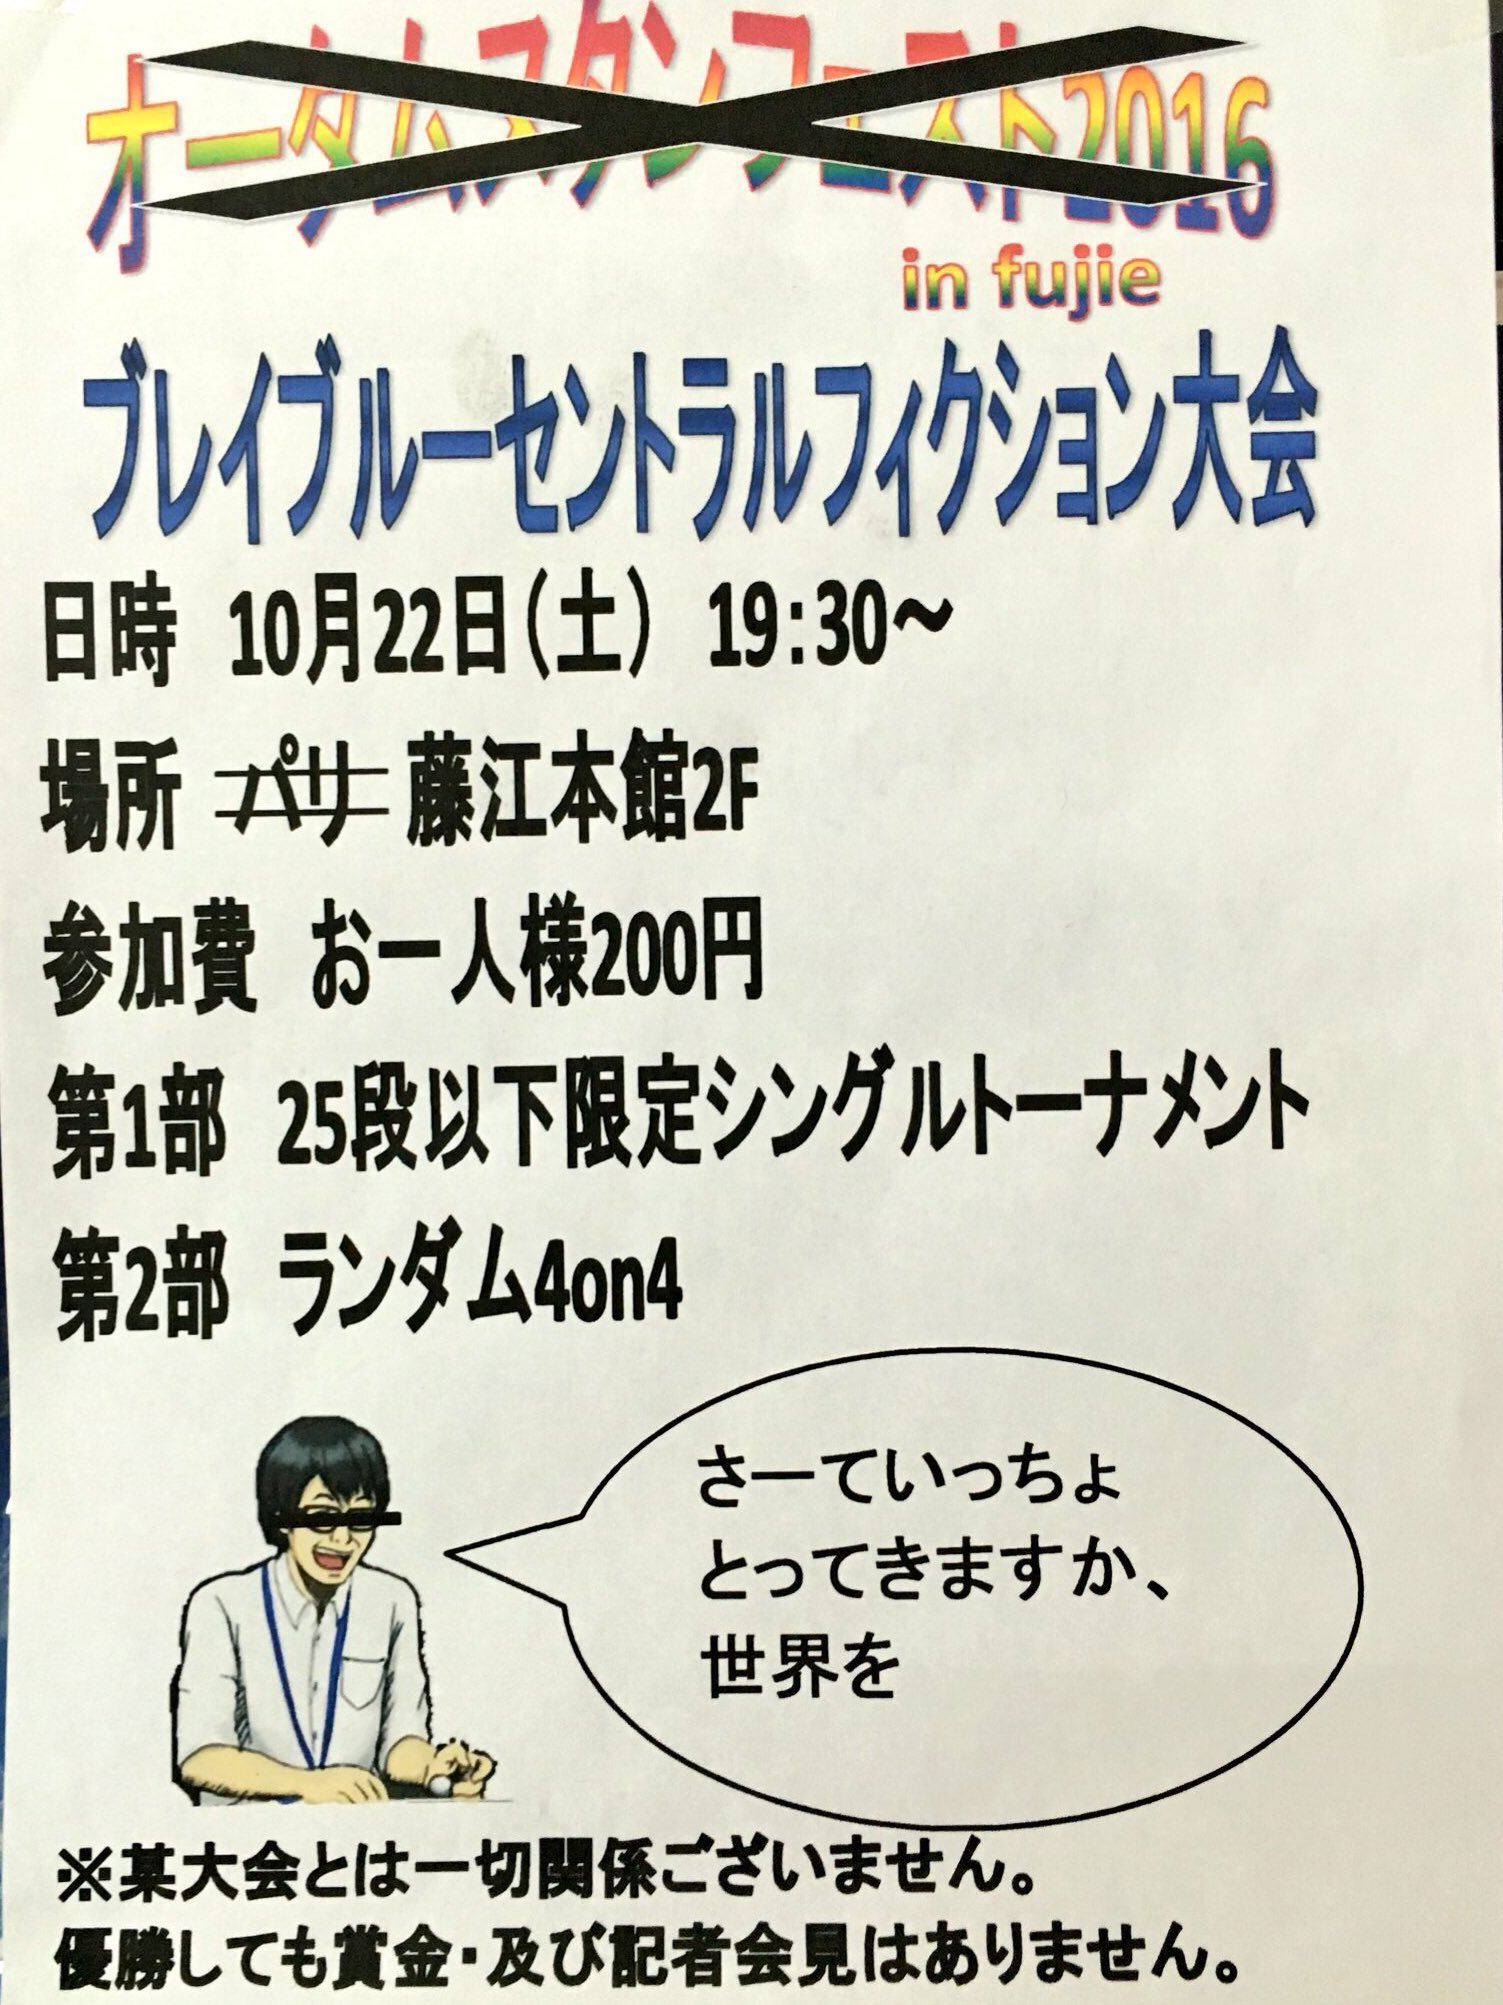 オータムスタンフェスト2016
in fujie
ブレイブルーセントラルフィクション大会
日時　10月22日（土）　19：30～
場所　パリ　藤江本館2F
参加費　お一人様200円
第1部　25段以下限定シングルトーナメント
第2部　ランダム4on4
さーていっちょ
とってきますか、
世界を
※某大会とは一切関係ございません。
優勝しても賞金・及び記者会見はありません。